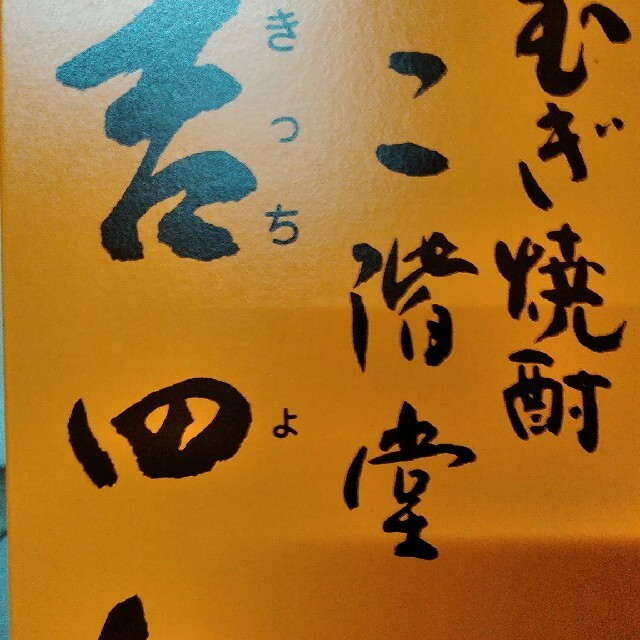 むぎ焼酎
二階堂
吉四
きっちよ